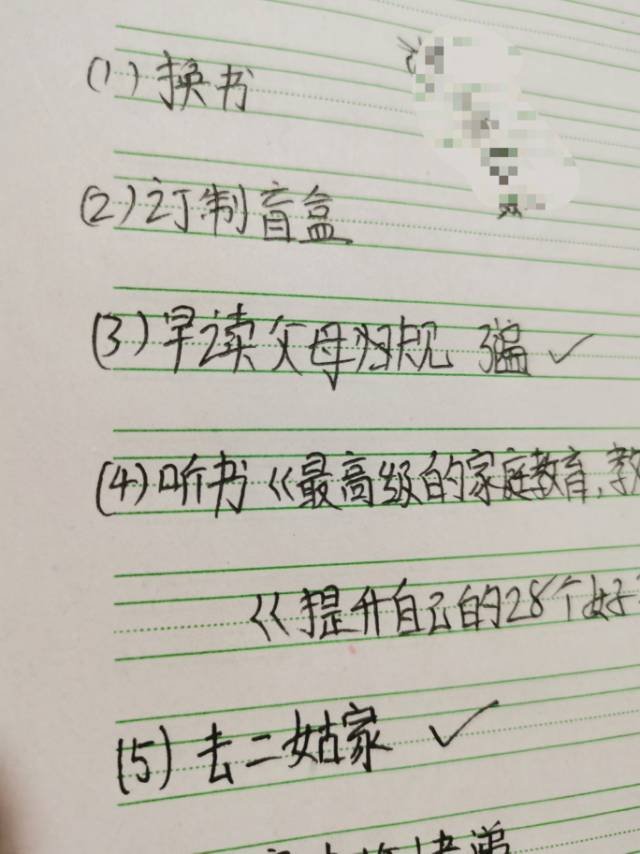 (1) 换书
(2) 订制盲盒
(3) 早读父母归规 3遍 ✓
(4) 听书《最高级的家庭教育,教
《提升自己的28个好
(5) 去二姑家 ✓